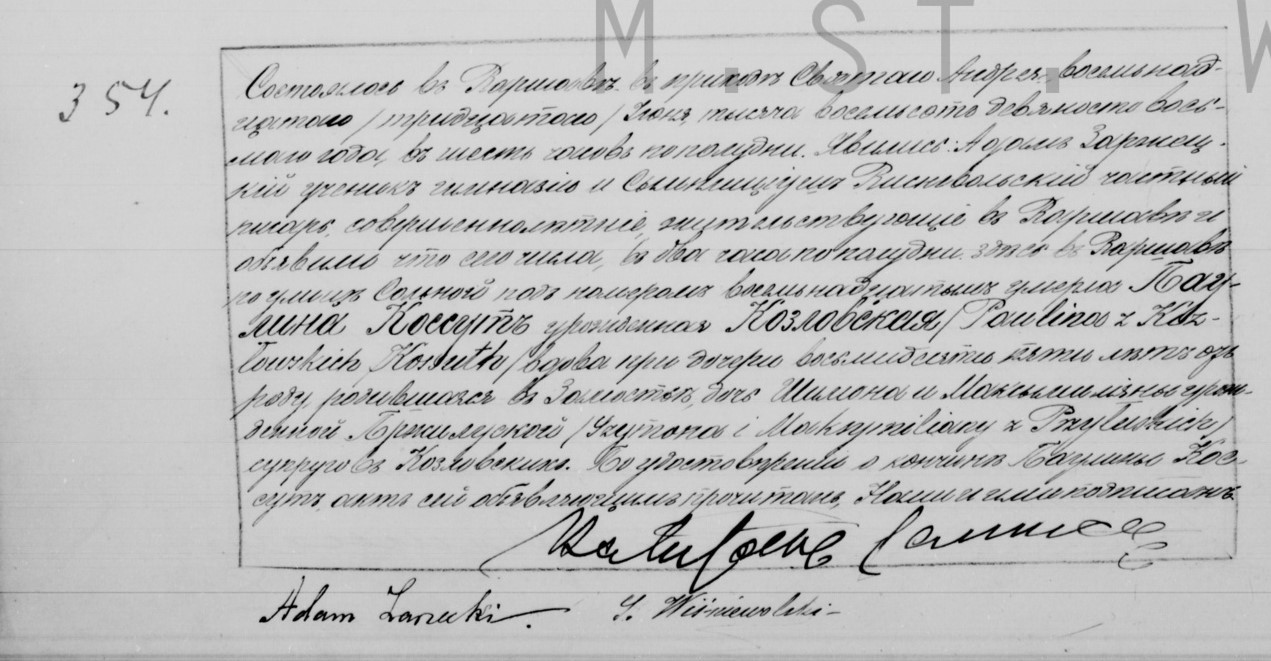 M. ST. W
354.
Состоялось въ Варшавѣ въ приходѣ Святаго Андрея восемьнад-
цатаго /тридцатаго/ Іюня, тысяча восемьсотъ девяносто вось-
маго года, въ шесть часовъ пополудни. Явились: Адамъ Заржец-
кій ученикъ гимназіи и Висневольскій частный
писарь, совершеннолѣтніе, жительствующіе въ Варшавѣ и
объявили что сего числа, въ два часа пополудни здѣсь въ Варшавѣ
по улицѣ Сольной подъ номеромъ восемьнадцатымъ умерла Пау-
лина Коссутъ урожденная Козловская /Paulina z Koz-
łowskich Kossuth/ вдова при дочери восьмидесяти пяти лѣтъ отъ
роду, родившаяся въ Замостьѣ, дочь Шимона и Макымиліяны урож-
денной /Szymona i Maksymiliany z /
супруговъ Козловскихъ. По удостовѣреніи о кончинѣ Паулины Кос-
сутъ, актъ сей объявляющимъ прочитанъ, Нами и ими подписанъ.
Adam Zarzecki. S. Wiśniewolski